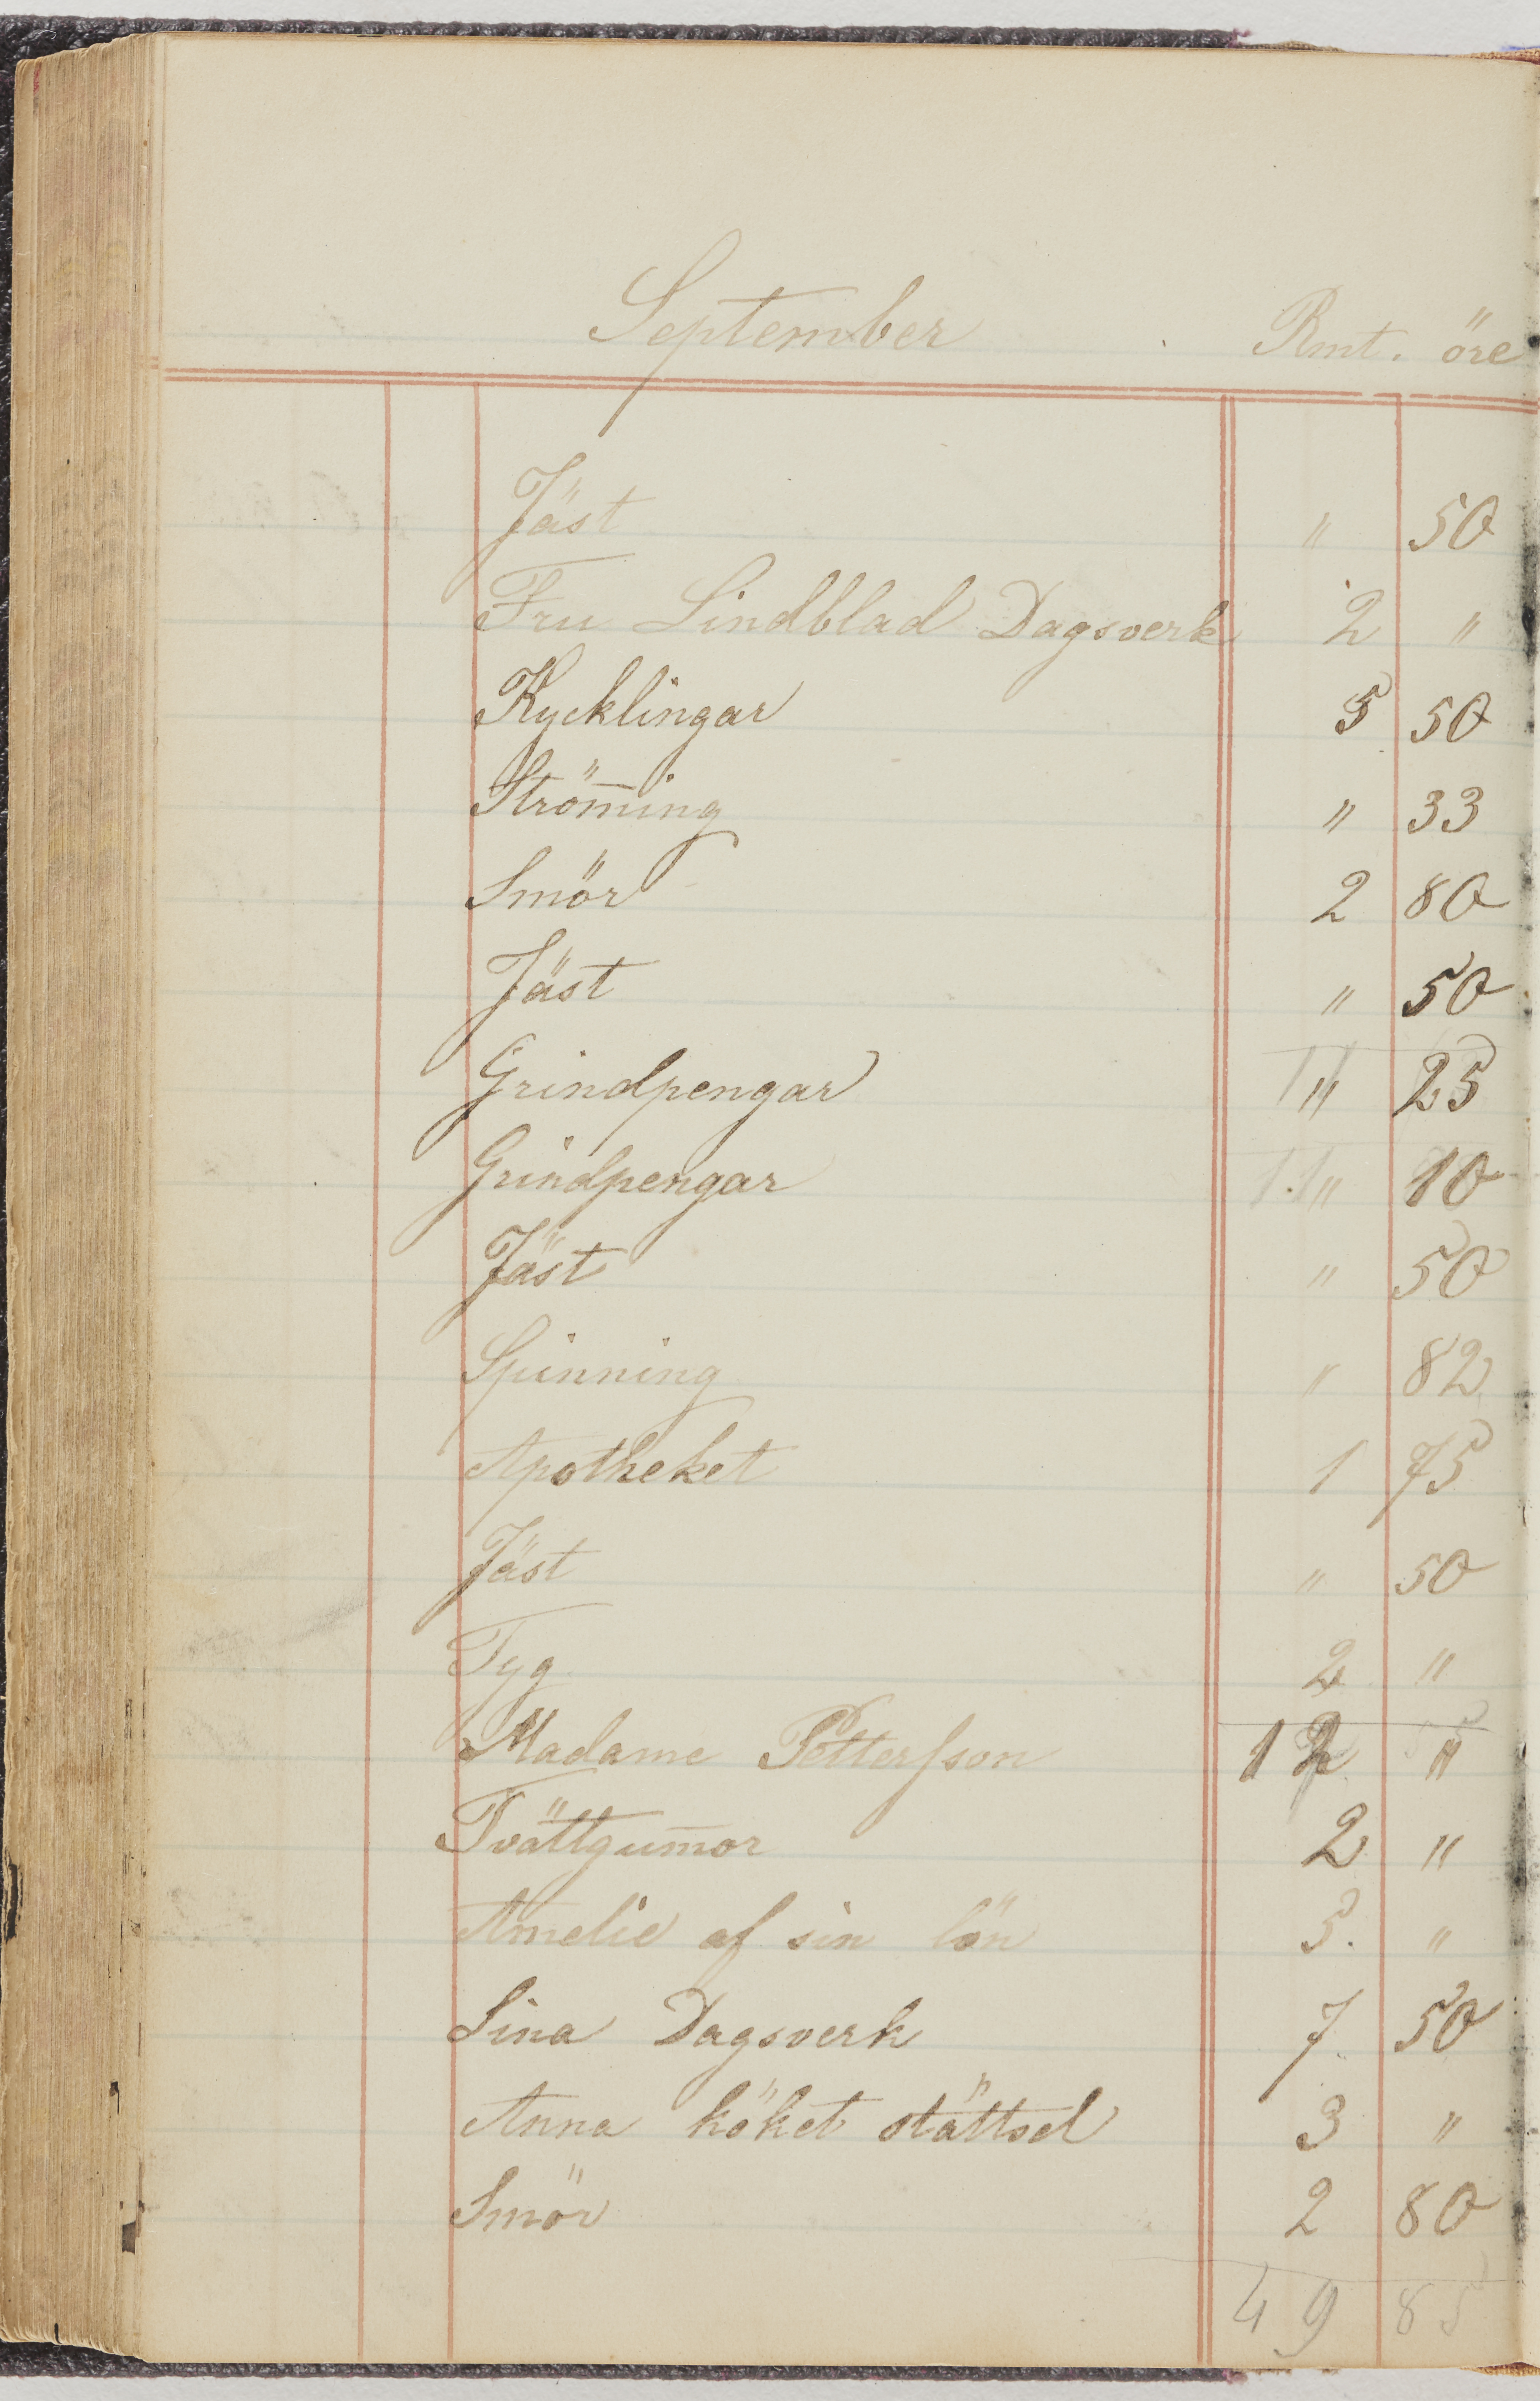 September Rmt. öre
Jäst " 50
Fru Lindblad Dagsverk 2 "
Kycklingar 5 50
Ström̄ing " 33
Smör 2 80
Jäst " 50
Grindpengar " 25
Grindpengar " 10
Jäst " 50
Spinning " 82
Apotheket 1 75
Jäst " 50
Tyg 2 "
Madame Petterſson 12 "
Tvättgum̄or 2 "
Amelie af sin lön 5. "
Lina Dagsverk 7 50
Anna köket stättsel 3 "
Smör 2 80
49 85